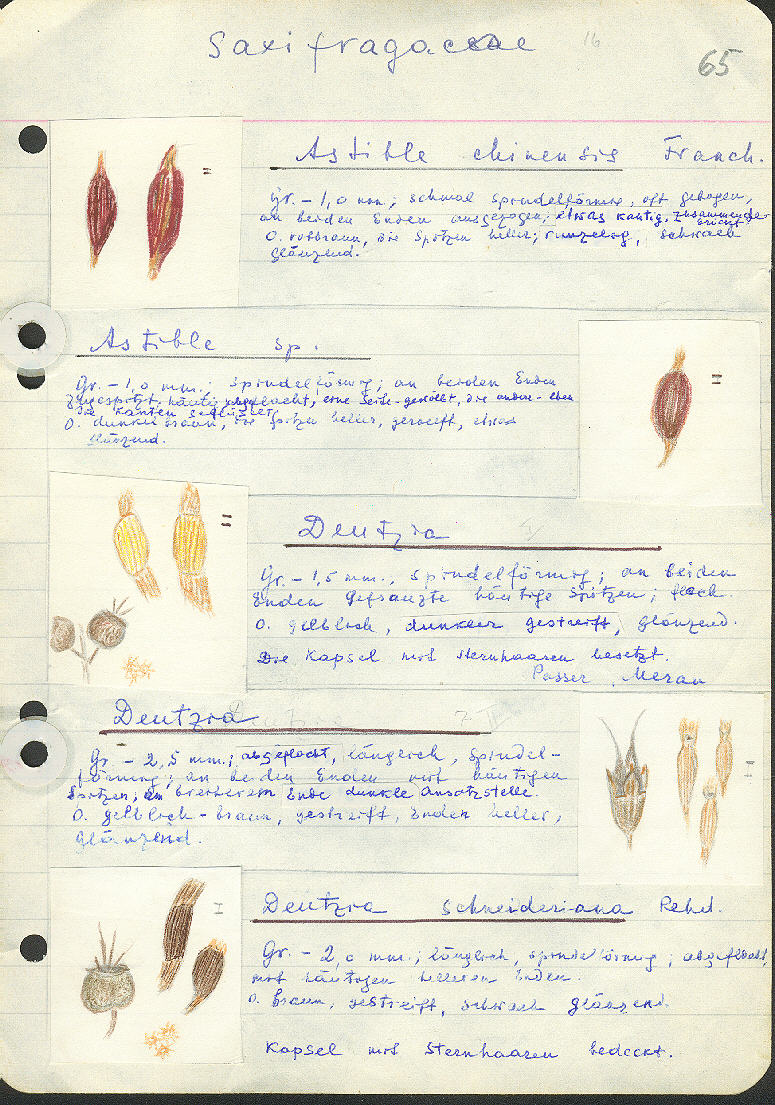 Saxifragaceae
16
65
Astible chinensis Franch.
Gr. - 1,0 mm; schmal spindelförmig, oft gebogen,
an beiden Enden ausgezogen; etwas kantig,
O. rotbraun, die Spitzen heller; runzelig, schwach
glänzend.
Astible sp.
Gr. - 1,0 mm.; spindelförmig; an beiden Enden
zugespitzt, häutig, abgeflacht, eine Seite - gewölbt, die andere - eben
die Kanten geflügelt
O. dunkelbraun, die Spitzen heller, gestreift, etwas
glänzend.
Deutzia I
Gr. - 1,5 mm., spindelförmig; an beiden
Enden gefranzte häutige Spitzen; flach.
O. gelblich, dunkler gestreift, glänzend.
Die Kapsel mit Sternhaaren besetzt.
Passer, Meran
Deutzia II
Gr. - 2,5 mm.; abgeflacht, länglich, spindel-
förmig; an beiden Enden mit häutigen
Spitzen; am breiterem Ende dunkle Ansatzstelle.
O. gelblich-braun, gestreift, Enden heller,
glänzend.
Deutzia schneideriana Rehd.
Gr. - 2,0 mm.; länglich, spindelförmig; abgeflacht,
mit häutigen helleren Enden.
O. braun, gestreift, schwach glänzend.
Kapsel mit Sternhaaren bedeckt.